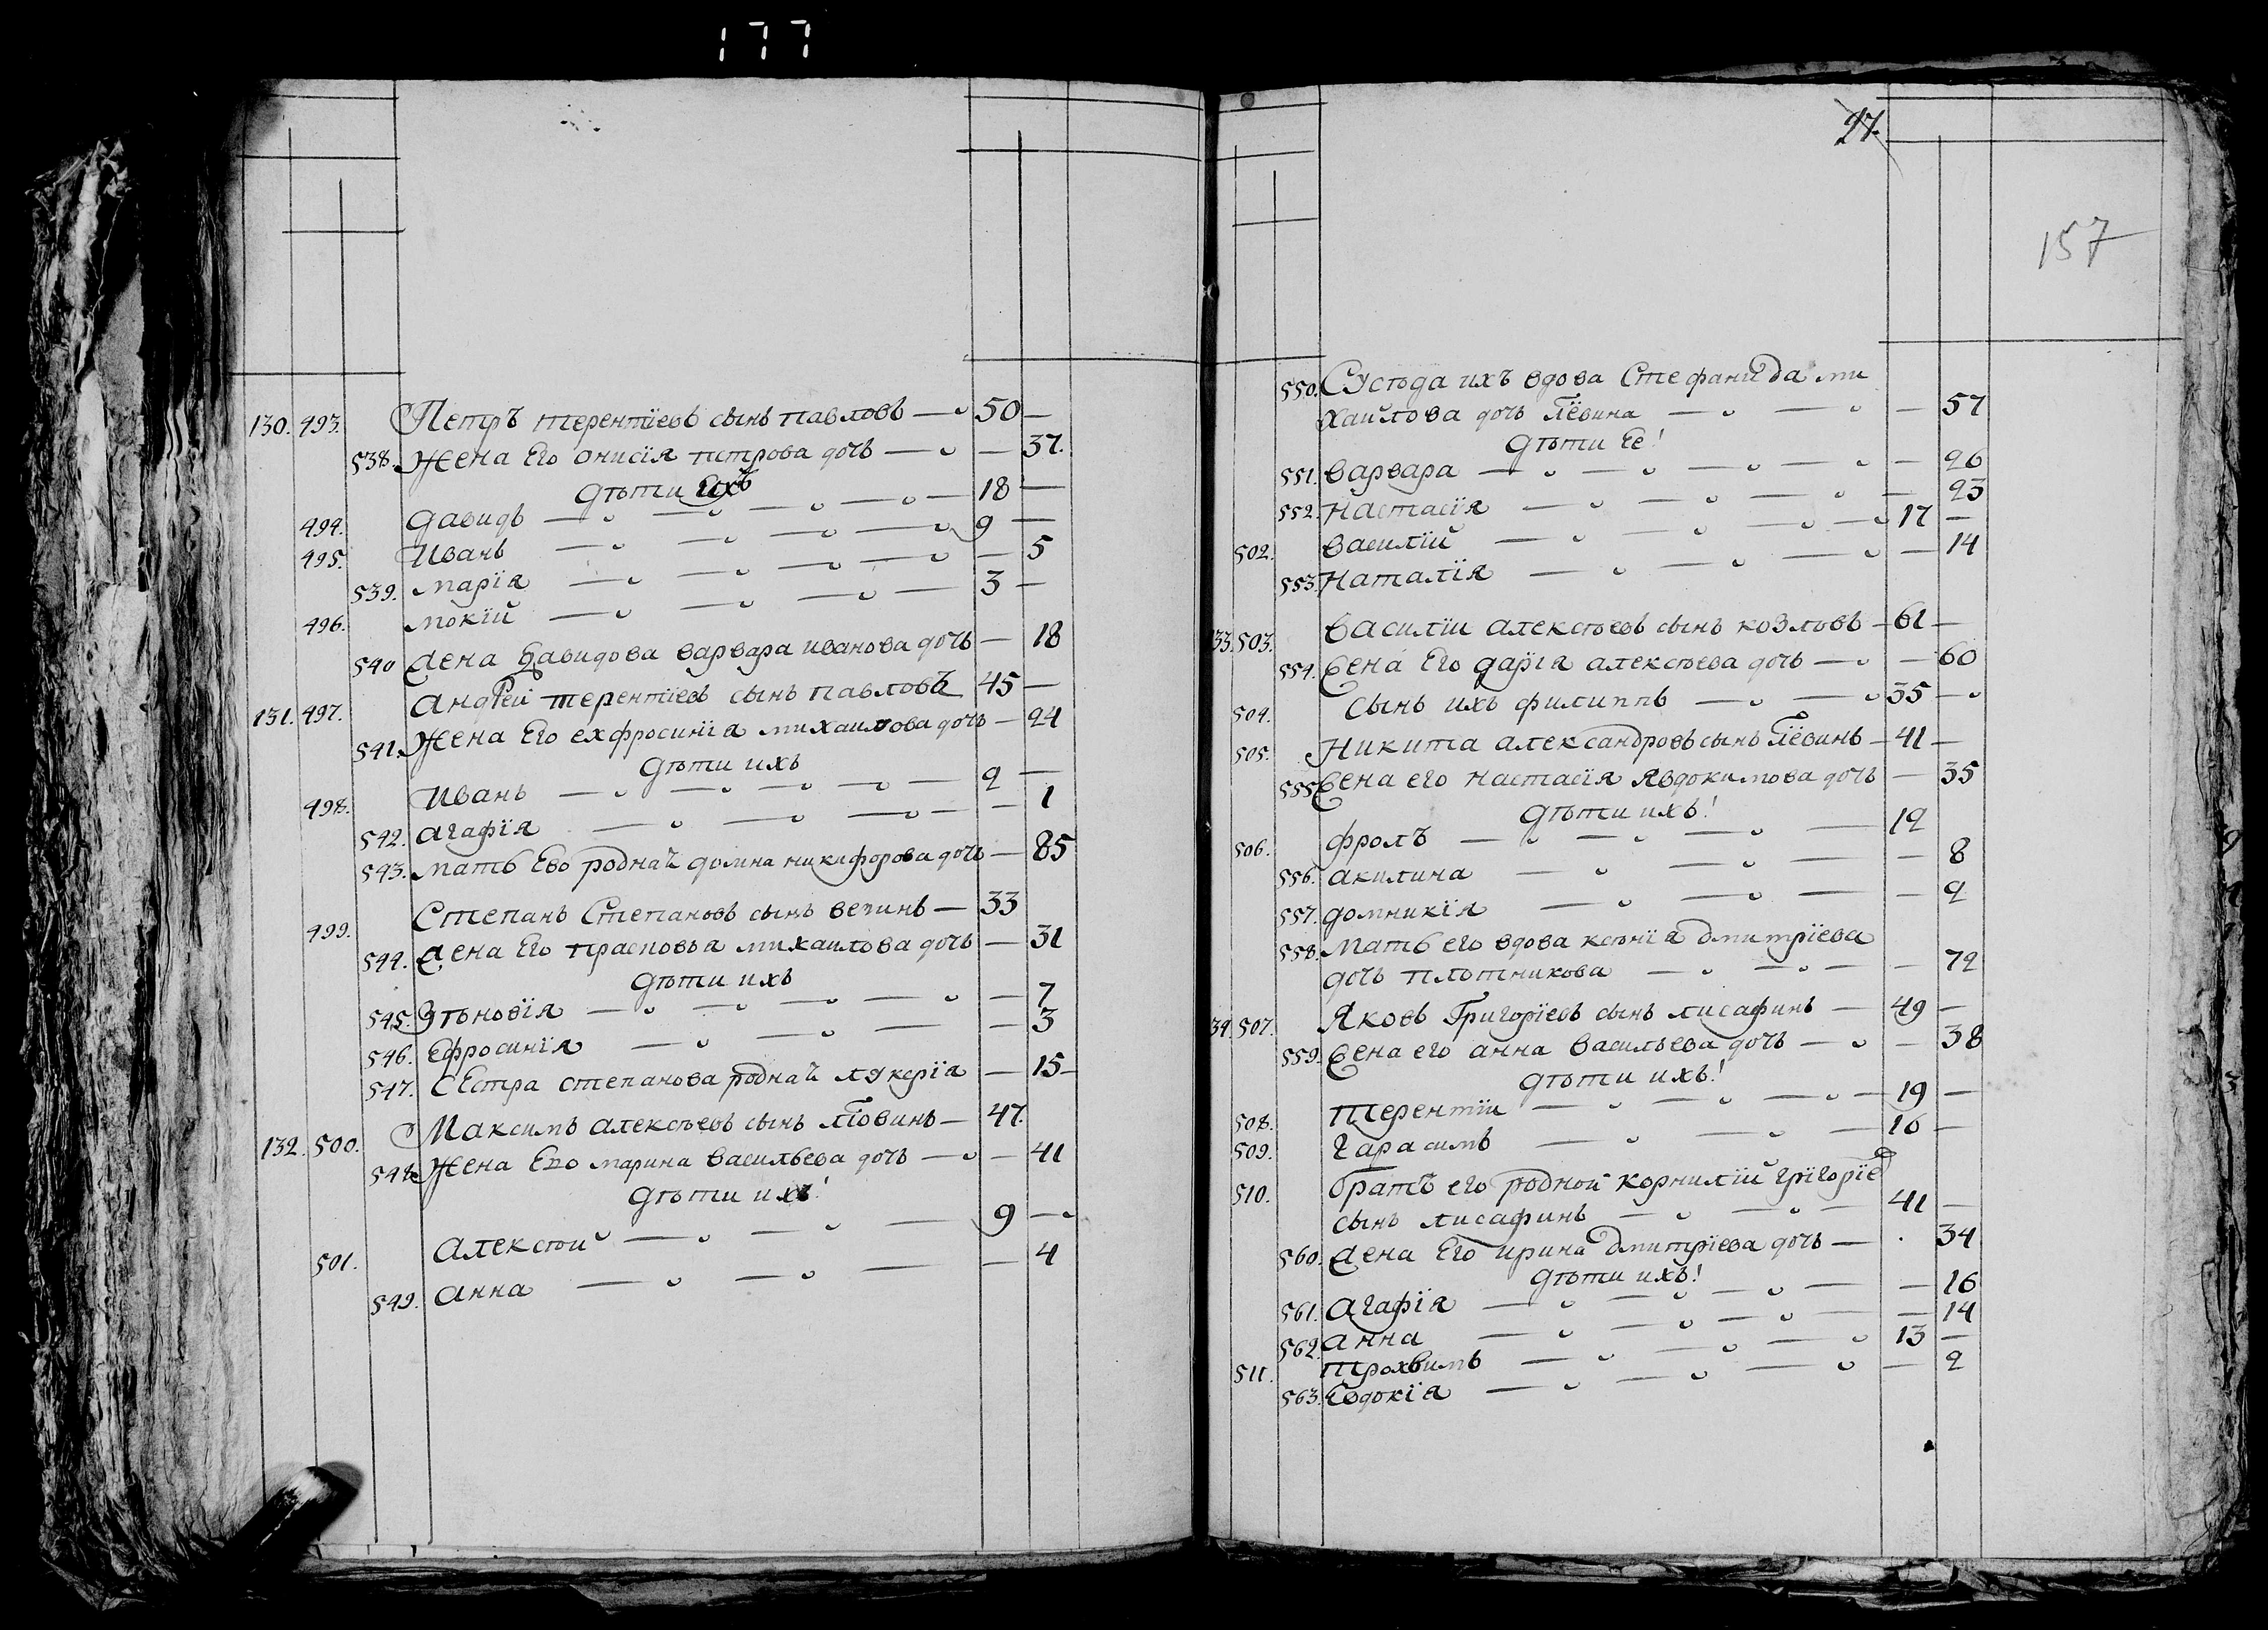 177
130. 493. Петръ терентїевъ сынъ павловъ — 50 —
538. Жена Его онисїя петрова дочь — — 37.
дѣти ихъ
494. давидъ — 18 —
495. Иванъ — 9 —
539. марїя — — 5
496. мокїй — 3 —
540 жена давидова варвара иванова дочь — 18
131. 497. Андрей терентїевъ сынъ павловъ 45 —
541. Жена Его ехфросинїя михаилова дочь — 24
дѣти ихъ
498. Иванъ — 2 —
542. агафїя — — 1
543. мать Ево родная домна никифорова дочь — 85
499. Степанъ Степановъ сынъ — 33
544. жена Его прасковья михаилова дочь — 31
дѣти ихъ
545. — 7
546. Ефросинїя — — 3
547. СЕстра степанова родная лукерїя — 15 —
132. 500. Максимъ алексѣевъ сынъ — 47.
548. Жена Ево марина васильева дочь — — 41
дѣти ихъ!
501. алексѣй — 9 —
549. анна — — 4
27.
157
550. Сусѣда ихъ вдова Стефанида ми
хаилова дочь — — 57
дѣти Ее!
551. варвара — — 26
552. настасїя — — 23
502. василїй — 17 —
553. наталїя — — 14
133. 503. василїи алексѣевъ сынъ козловъ — 61 —
554. жена Его дарїя алексѣева дочь — — 60
504. сынъ ихъ филиппъ — 35 —
505. Никита александровъ сынъ — 41 —
555. жена его настасїя явдокимова дочь — 35
дѣти ихъ!
506. фролъ — 12
556. акилина — — 8
557. домникїя — — 2
558. мать его вдова ксѣнїя дмитрїева
дочь плотникова — — 72
134. 507. Яковъ Григорїевъ сынъ лисафинъ — 49 —
559. жена его анна васильева дочь — — 38
дѣти ихъ!
508. терентїи — 19 —
509. гарасимъ — 16 —
510. братъ его родной корнилїй григорїевъ
сынъ лисафинъ — 41 —
560. жена Его ирина дмитрїева дочь — . 34
дѣти ихъ!
561. агафїя — — 16
562. анна — — 14
511. трохвимъ — 13 —
563. Евдокїя — — 2